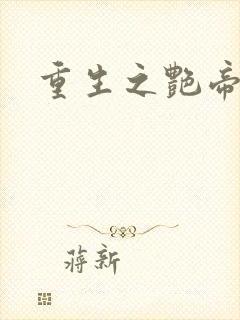 重生之艷帝
蔣新